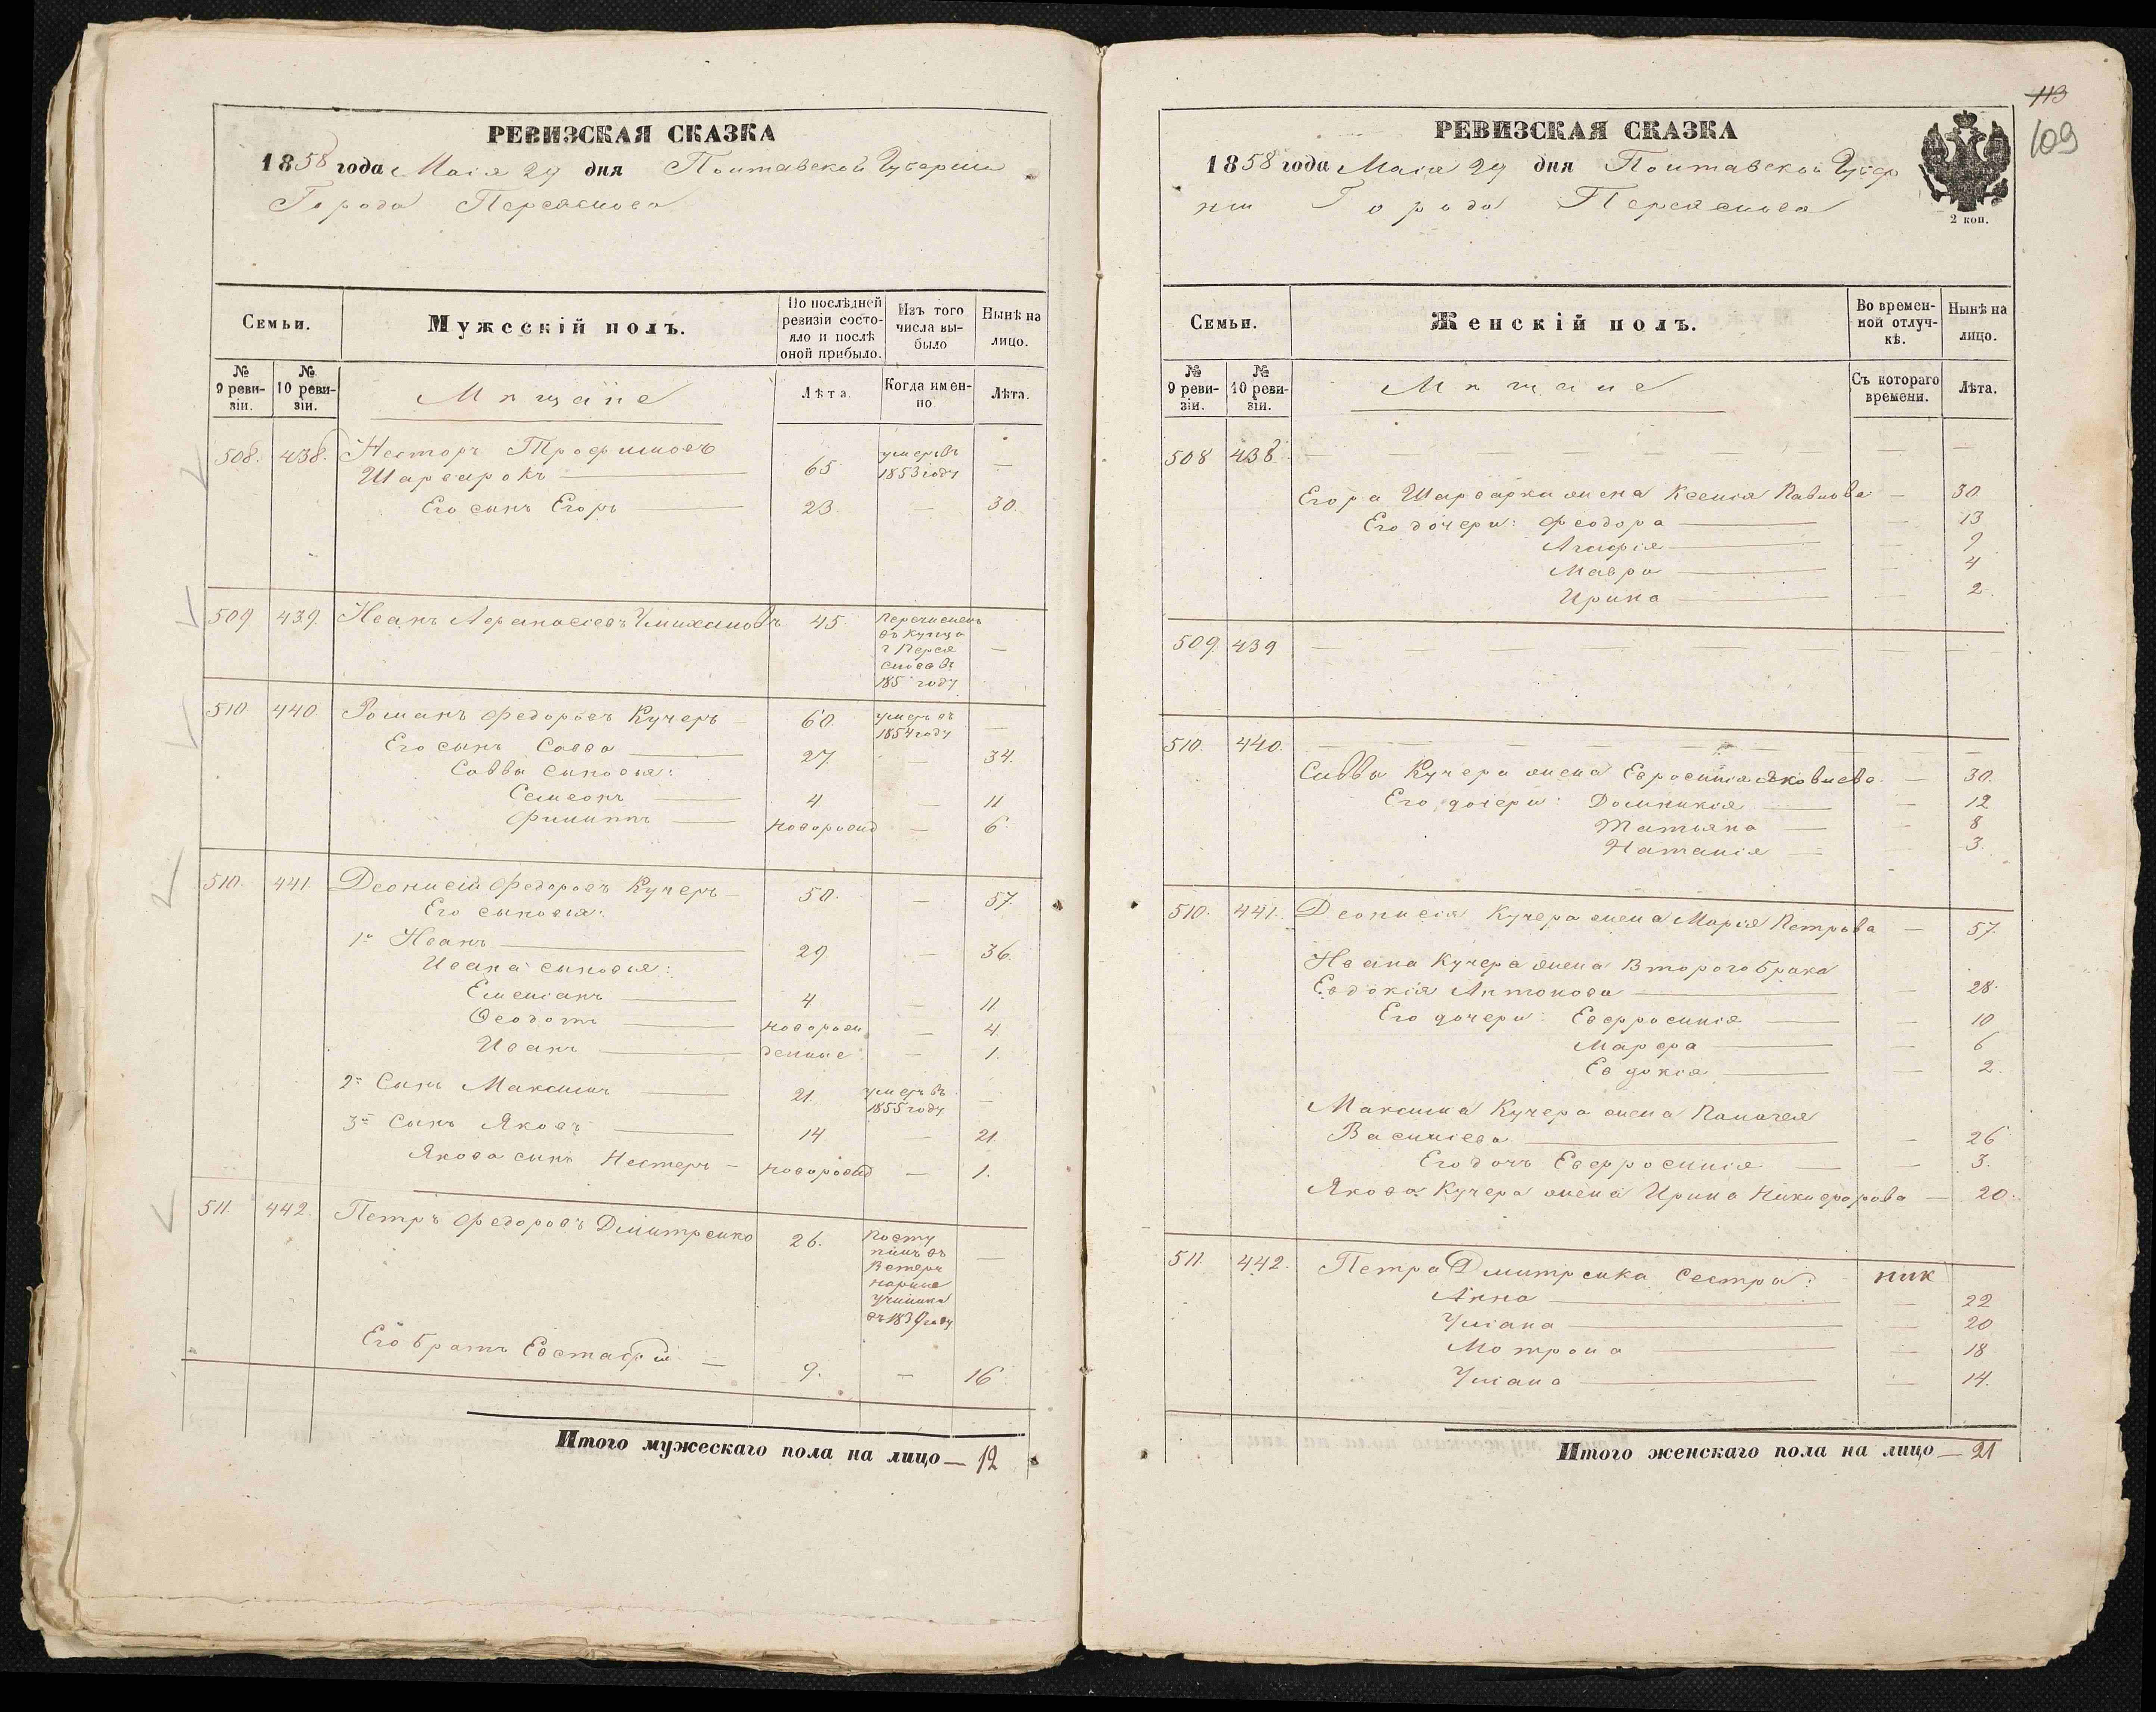 РЕВИЗСКАЯ СКАЗКА
1858 года Маія 29 дня Полтавской Губерніи
Города Переяслова
Семьи.
Мужескій полъ.
По послѣдней ревизіи состояло и послѣ оной прибыло.
Изъ того числа выбыло
Нынѣ на лицо.
№ 9 ревизіи.
№ 10 ревизіи.
Мѣщане
Лѣта.
Когда именно
Лѣта.
508. 438. Несторъ Трофимовъ
Шарварокъ 65 умеръ въ 1853 году —
Его сынъ Егоръ 23 — 30.
509 439. Иванъ Афанасіевъ 45. перечисленъ въ купцы г. Переяслова въ 185 году —
510 440. Романъ Федоровъ Кучеръ 60. умеръ въ 1854 году —
Его сынъ Савва 27. — 34.
Саввы сыновья:
Семеонъ 4 — 11
Филиппъ новорожд — 6
510. 441. Деонисій Федоровъ Кучеръ 50. — 57.
Его сыновья:
1й Иванъ 29. — 36.
Ивана сыновья:
Емеліанъ 4 — 11.
Ѳеодотъ новорож — 4.
Иванъ денные — 1.
2й Сынъ Максимъ 21. умеръ въ 1855 году —
3й Сынъ Яковъ 14 — 21.
Якова сынъ Нестеръ — новорожд — 1.
511. 442. Петръ Федоровъ Дмитренко 26. Посту
пилъ въ
Ветери
нарные
ученики
въ 1839 году —
Его братъ Евстафій — 9. — 16
Итого мужескаго пола на лицо — 12
113
109
РЕВИЗСКАЯ СКАЗКА
1858 года Маія 29 дня Полтавской Губер
ніи Города Переяслова
2 коп.
Семьи.
Женскій полъ.
Во временной отлучкѣ.
Нынѣ на лицо.
№ 9 ревизіи.
№ 10 ревизіи.
Мѣщане
Съ котораго времени.
Лѣта.
508 438 — — — — — — — —
Егора Шарварка жена Ксенія Павлова — 30
Его дочери: Феодора — 13
Агафія — 9
Мавра — 4
Ирина — 2.
509 439 — — — — — — —
510. 440. — — — — — — —
Саввы Кучера жена Евросинія Яковлева — 30.
Его дочери: Домникія — 12
Татьяна — 8
Наталія — 3.
510. 441. Деонисія Кучера жена Марія Петрова — 57.
Ивана Кучера жена Второго брака
Евдокія Антонова — 28.
Его дочери: Евфросинія — 10
Марфа — 6
Евдокія — 2
Максима Кучера жена Палагея
Василіева — 26
Его дочь Евфросинія — 3.
Якова Кучера жена Ирина Никифорова — 20.
511. 442. Петра Дмитренка сестра:
Анна — 22
Уліана — 20
Мотрона — 18
Уліана — 14.
Итого женскаго пола на лицо — 21